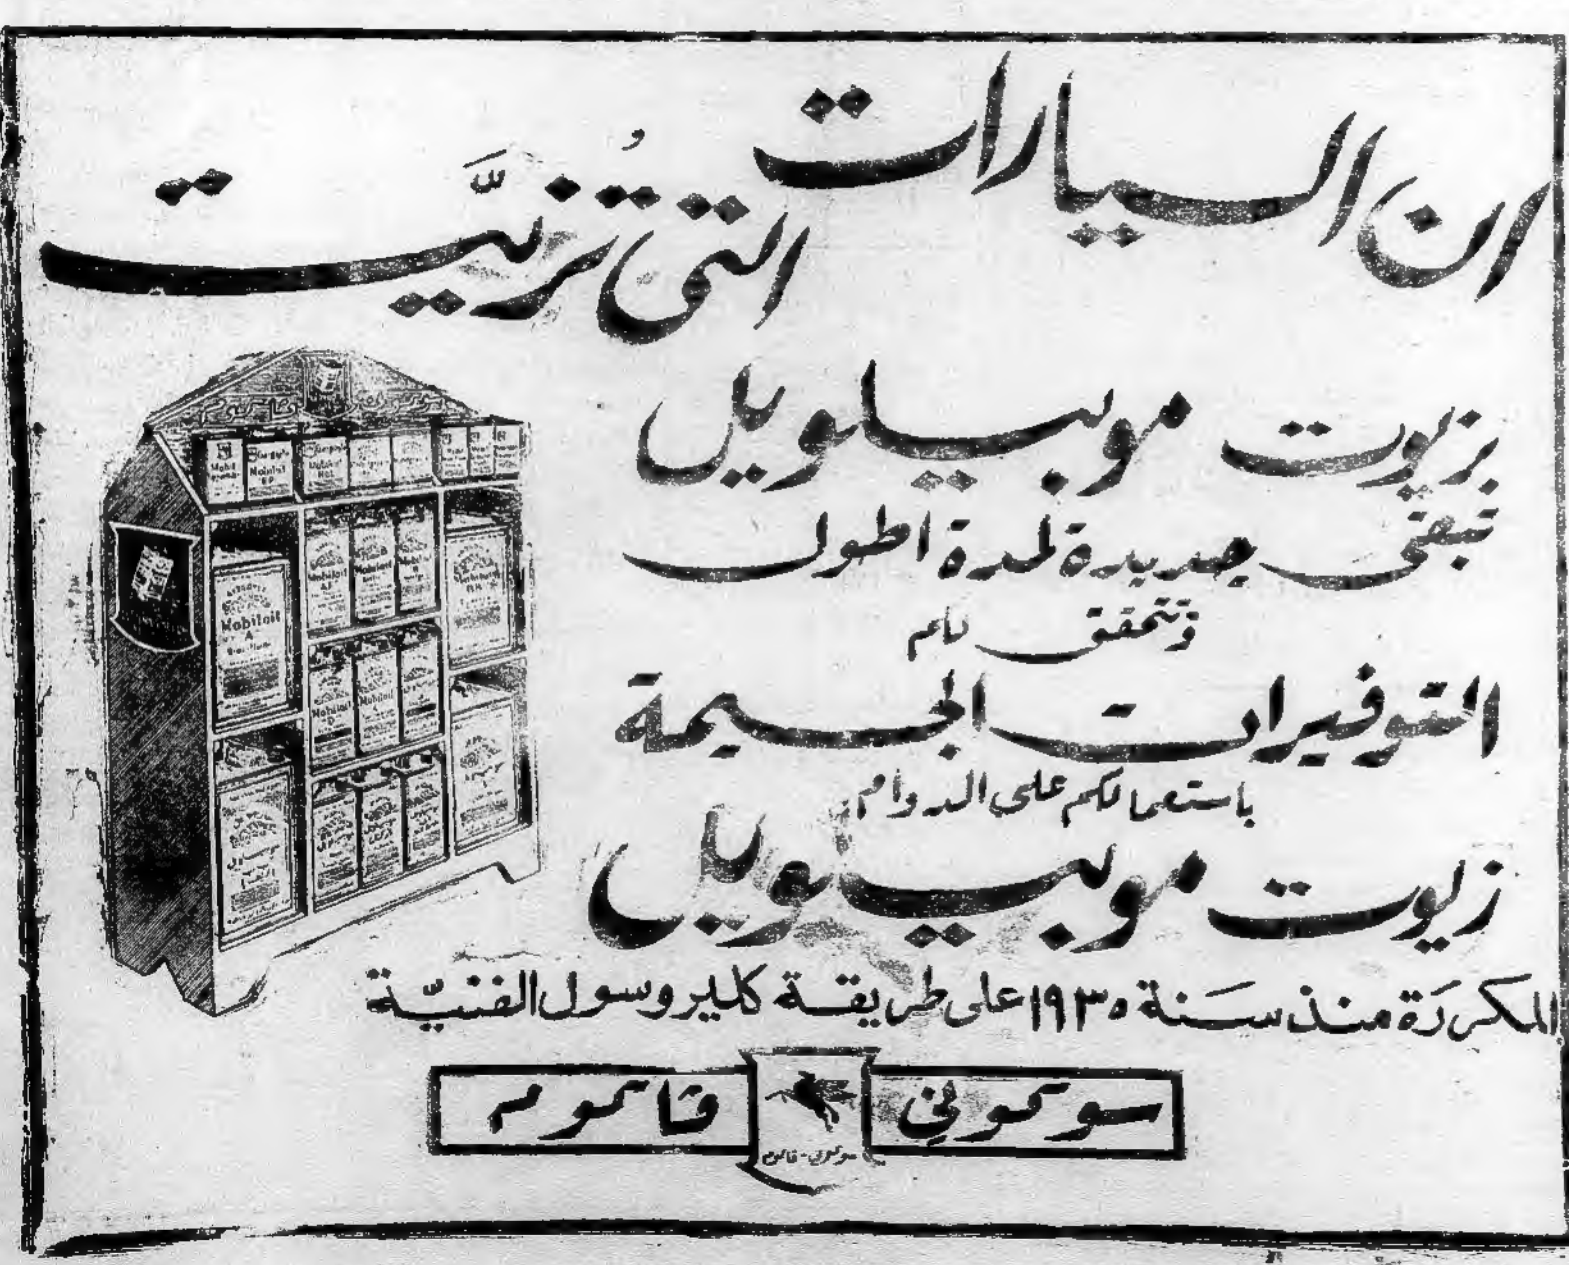 ان السيارات
التي تُزيَّت
بزيوت موبيلويل
تبقى جديدة لمدة اطول
وتتحقق لكم
التوفيرات الجسيمة
باستعمالكم على الدوام
زيوت موبيلويل
المكررَة منذ سَنة ١٩٣٥ على طريقة كليروسول الفنيّة
سوكوني ڤاكوم
سوكوني - ڤاكوم
Mobiloil
A
Mobiloil
D
Mobiloil